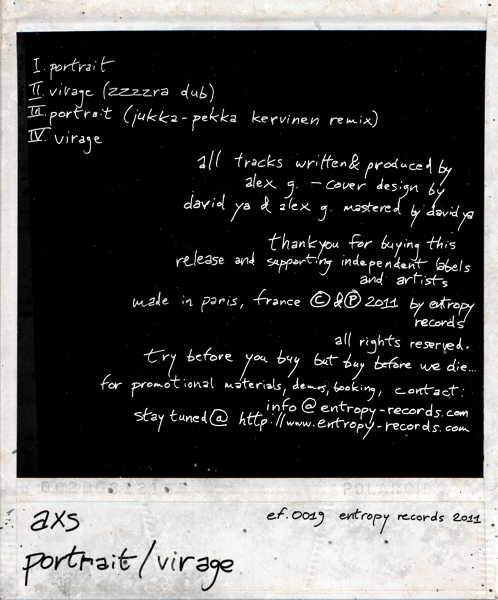 I. portrait
II. virage (zzzzra dub)
III. portrait (jukka-pekka kervinen remix)
IV. virage
all tracks written & produced by
alex g. - cover design by
david ya & alex g. mastered by david ya
thankyou for buying this
release and supporting independent labels
and artists
made in paris, france © & ℗ 2011 by entropy
records
all rights reserved.
try before you buy but buy before we die...
for promotional materials, demos, booking, contact:
info@entropy-records.com
stay tuned @ http://www.entropy-records.com
POLAROID
axs
ef.0019 entropy records 2011
portrait/virage